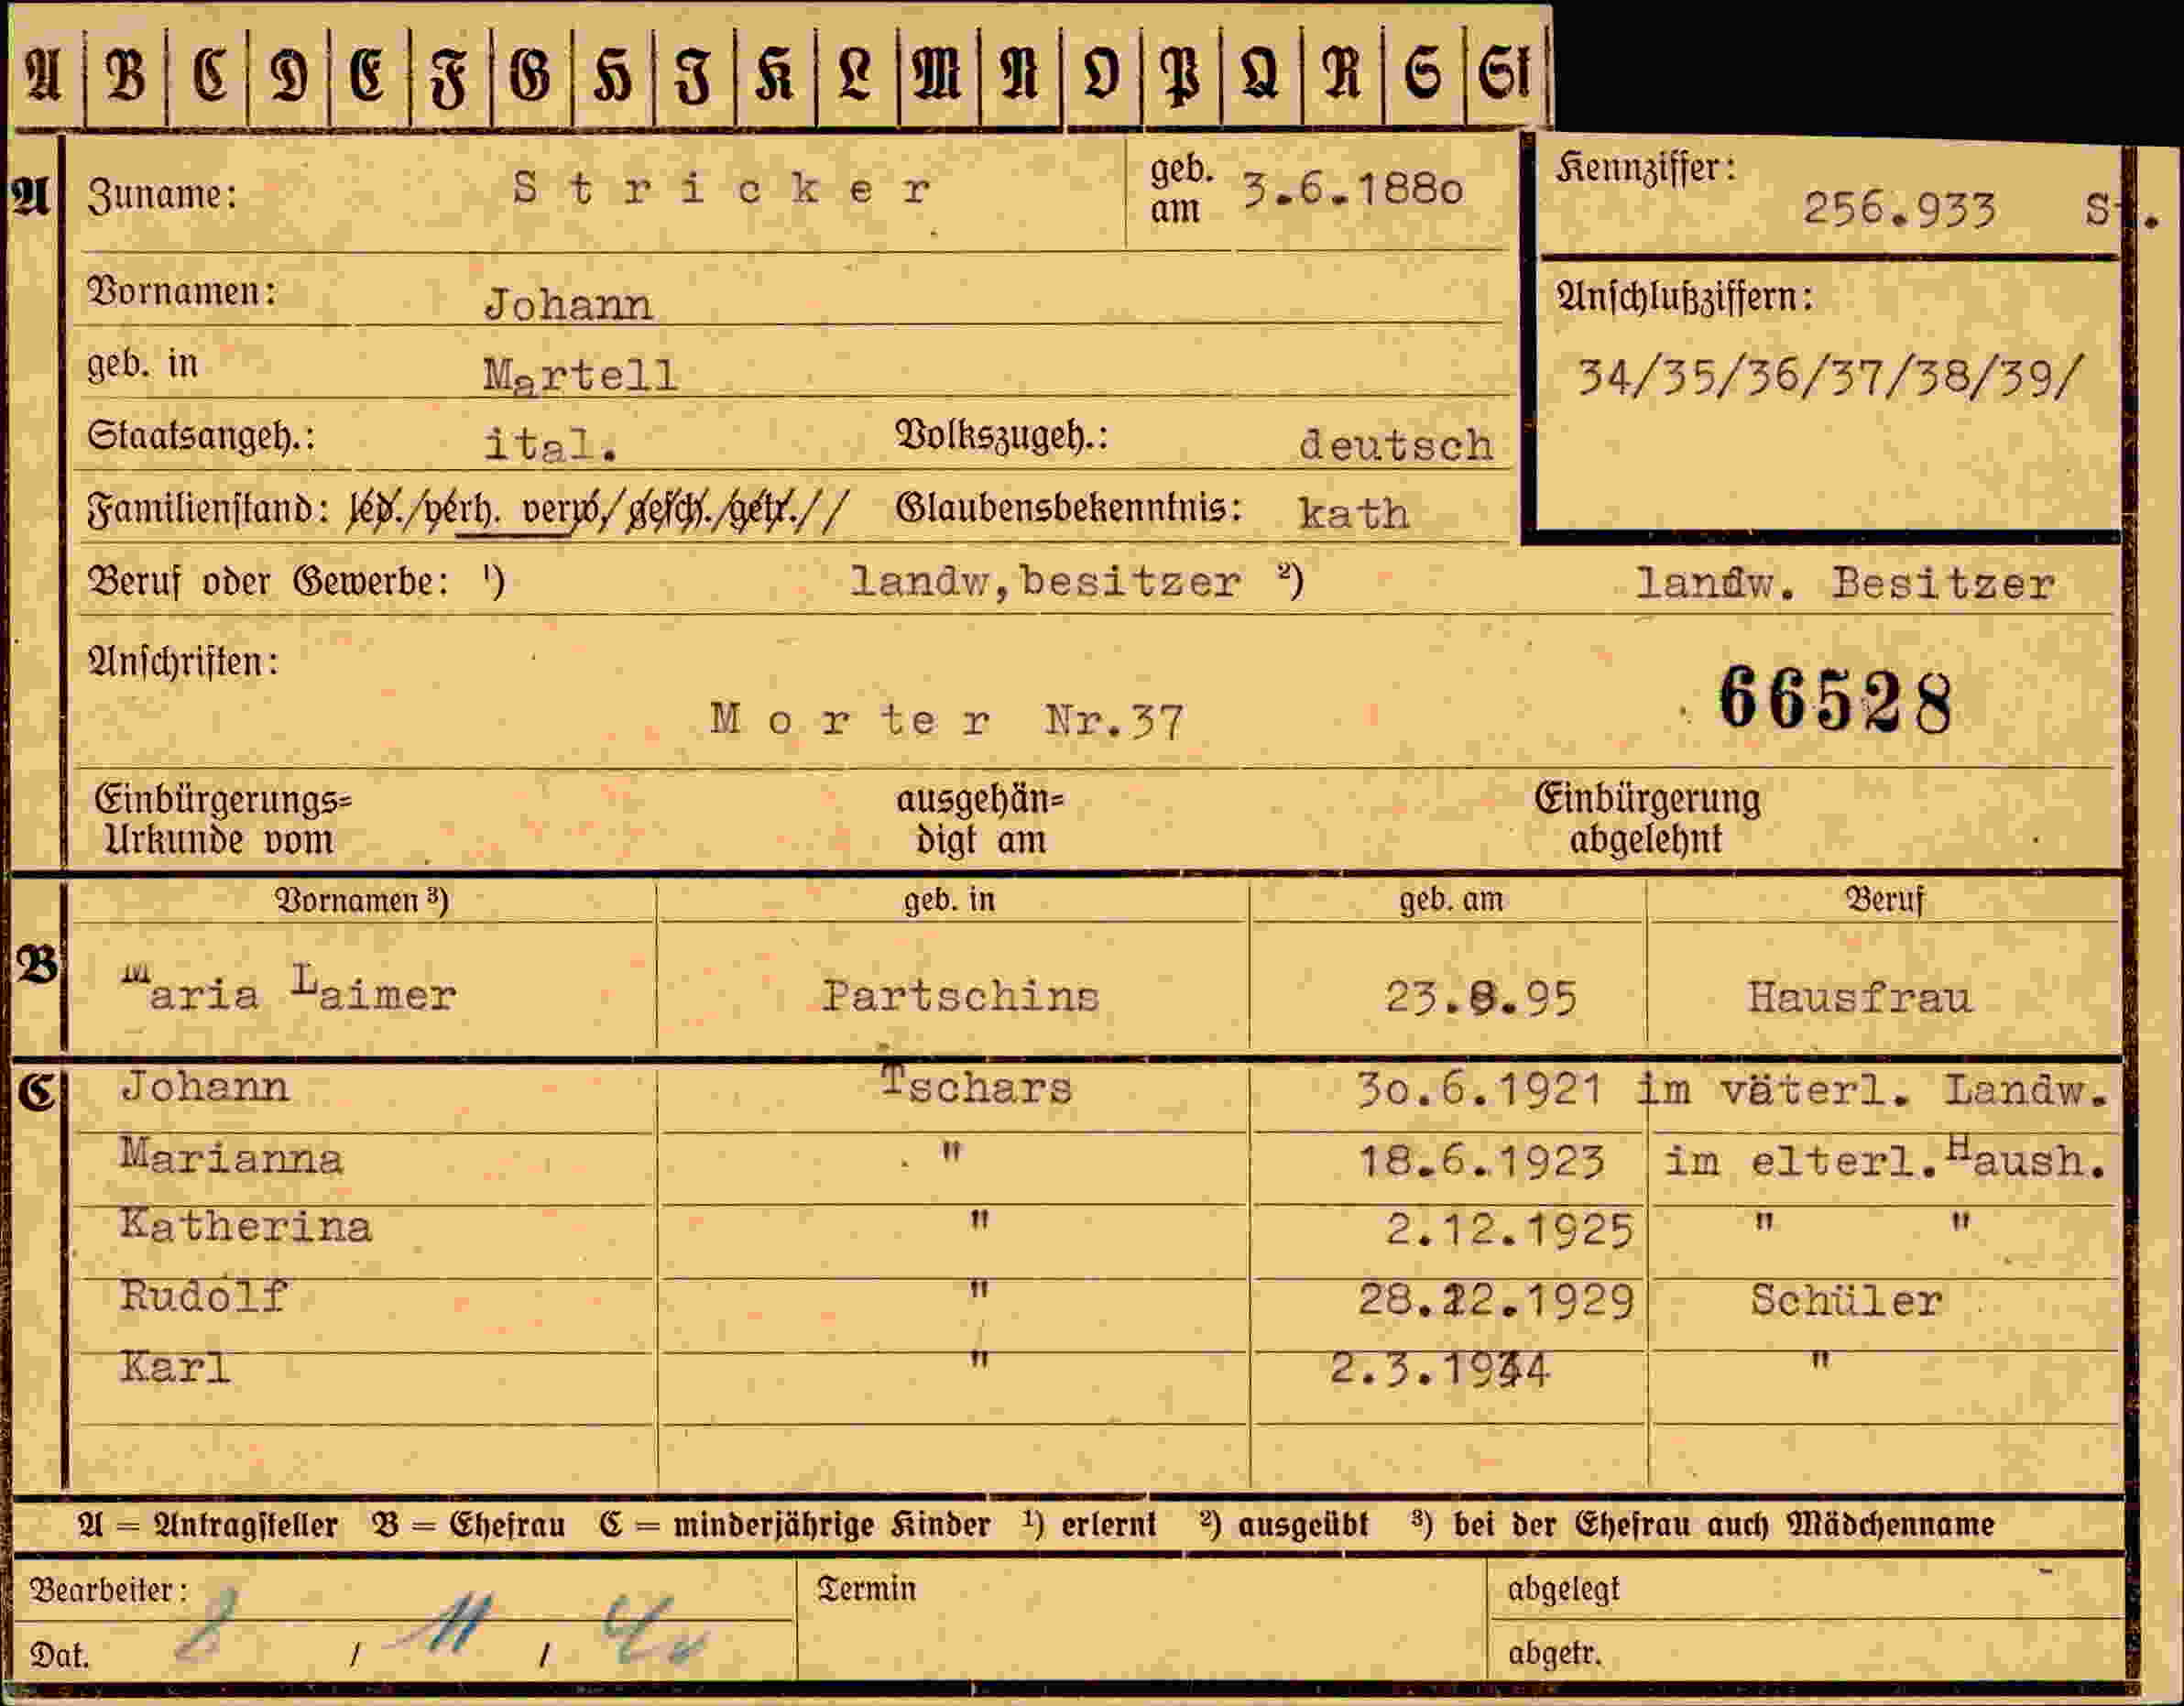 A B C D E F G H J K L M N O P Q R S St
A Zuname: Stricker geb. am 3.6.1880 Kennziffer: 256.933 St.
Vornamen: Johann Anschlußziffern:
geb. in Martell 34/35/36/37/38/39/
Staatsangeh.: ital. Volkszugeh.: deutsch
Familienstand: led./verh. verw./gesch./getr.// Glaubensbekenntnis: kath
Beruf oder Gewerbe: ¹) landw,besitzer ²) landw. Besitzer
Anschriften: 66528
Morter Nr.37
Einbürgerungs= ausgehän= Einbürgerung
Urkunde vom digt am abgelehnt
Vornamen ³) geb. in geb. am Beruf
B Maria Laimer Partschins 23.8.95 Hausfrau
C Johann Tschars 30.6.1921 im väterl. Landw.
Marianna " 18.6.1923 im elterl.Haush.
Katherina " 2.12.1925 " "
Rudolf " 28.12.1929 Schüler
Karl " 2.3.1934 "
A = Antragsteller B = Ehefrau C = minderjährige Kinder ¹) erlernt ²) ausgeübt ³) bei der Ehefrau auch Mädchenname
Bearbeiter: Termin abgelegt
Dat. 8 / 11 / 40 abgetr.